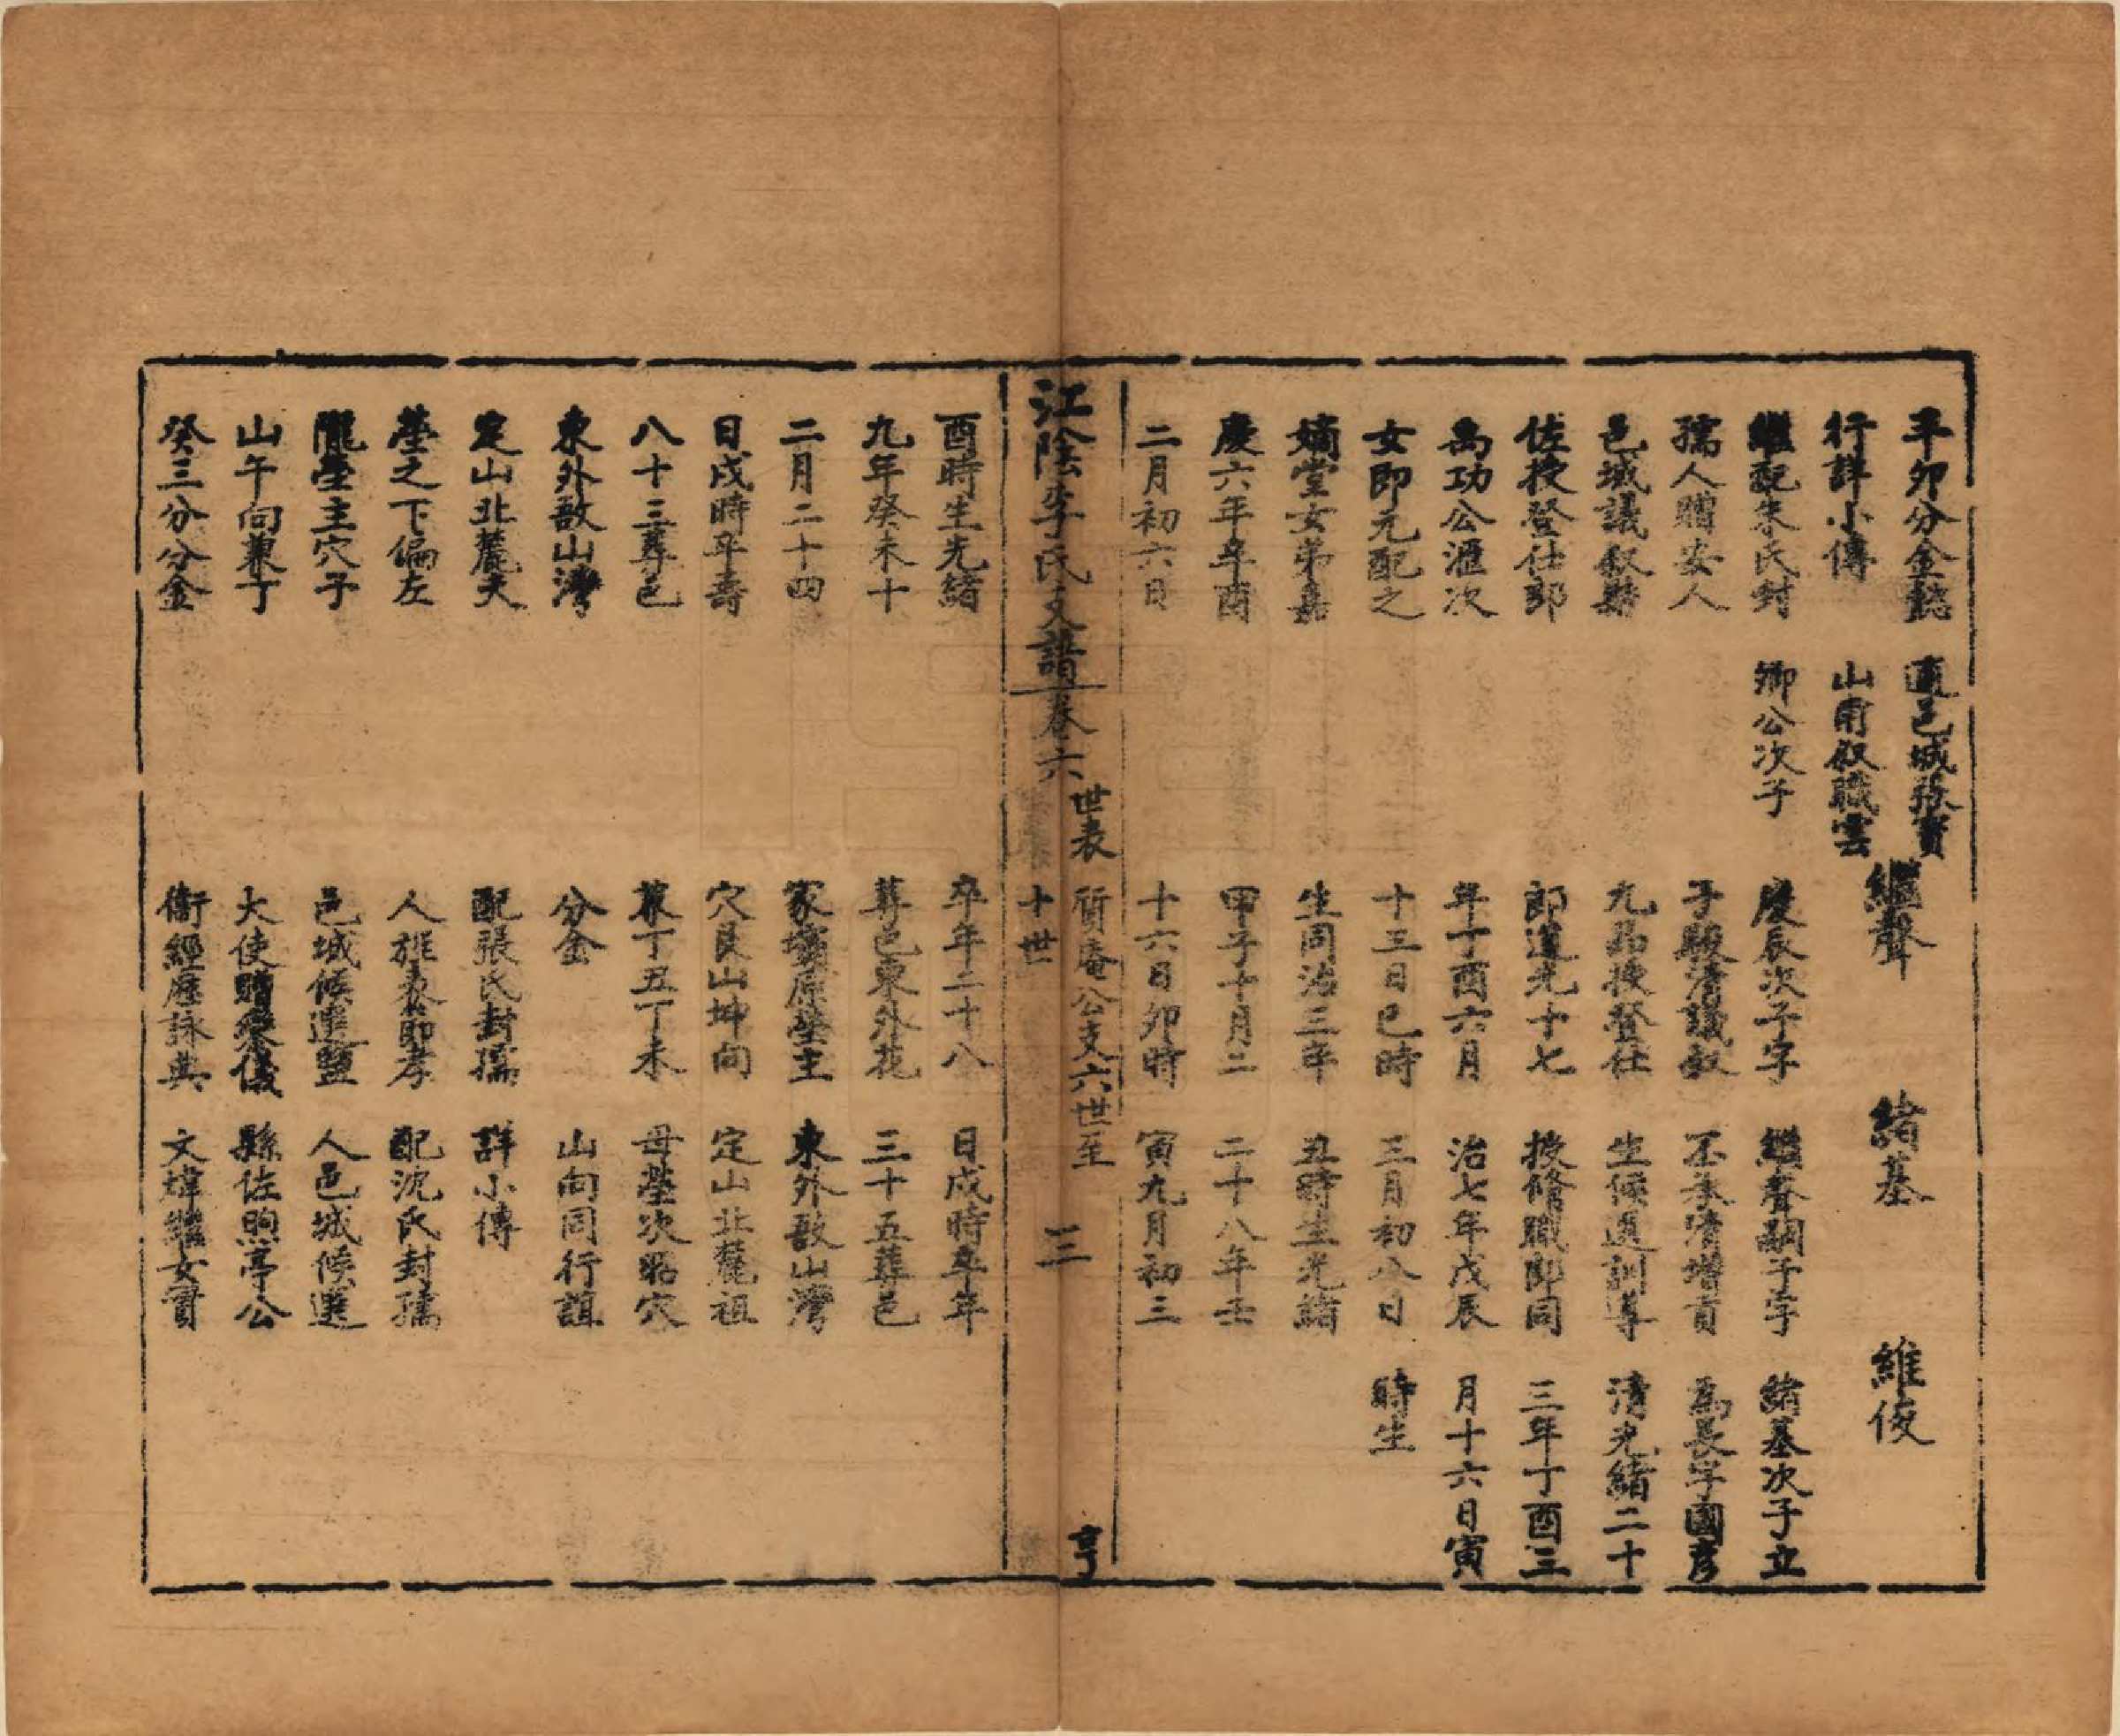 辛卯分金懿
行詳小傳
繼配朱氏封
孺人贈安人
邑城議敘縣
佐授登仕郎
禹功公滙次
女即元配之
嫡堂女弟嘉
慶六年辛酉
二月初六日
酉時生光緒
九年癸未十
二月二十四
日戌時卒壽
八十三葬邑
東外敔山灣
定山北麓天
塋之下偏左
隴塋主穴子
山午向兼丁
癸三分分金
適邑城張寶
山甫敘職雲
卿公次子
繼聲
慶辰次子字
子駿清議敘
九品授登仕
郎道光十七
年丁酉六月
十三日巳時
生同治三年
甲子十月二
十六日卯時
卒年二十八
葬邑東外花
家壩原塋主
穴艮山坤向
兼丁丑丁未
分金
配張氏封孺
人旌表節孝
邑城候選鹽
大使贈承儀
衞經歷詠典
緒基
繼聲嗣子字
丕承清增貢
生候選訓導
授脩職郎同
治七年戊辰
三月初八日
丑時生光緒
二十八年壬
寅九月初三
日戌時卒年
三十五葬邑
東外敔山灣
定山北麓祖
母塋次昭穴
山向同行誼
詳小傳
配沈氏封孺
人邑城候選
縣佐煦亭公
文煒繼女實
維俊
緒基次子立
為長字國彥
清光緒二十
三年丁酉三
月十六日寅
時生
江陰李氏支譜卷六
世表
質庵公支六世至
十世
三
亨